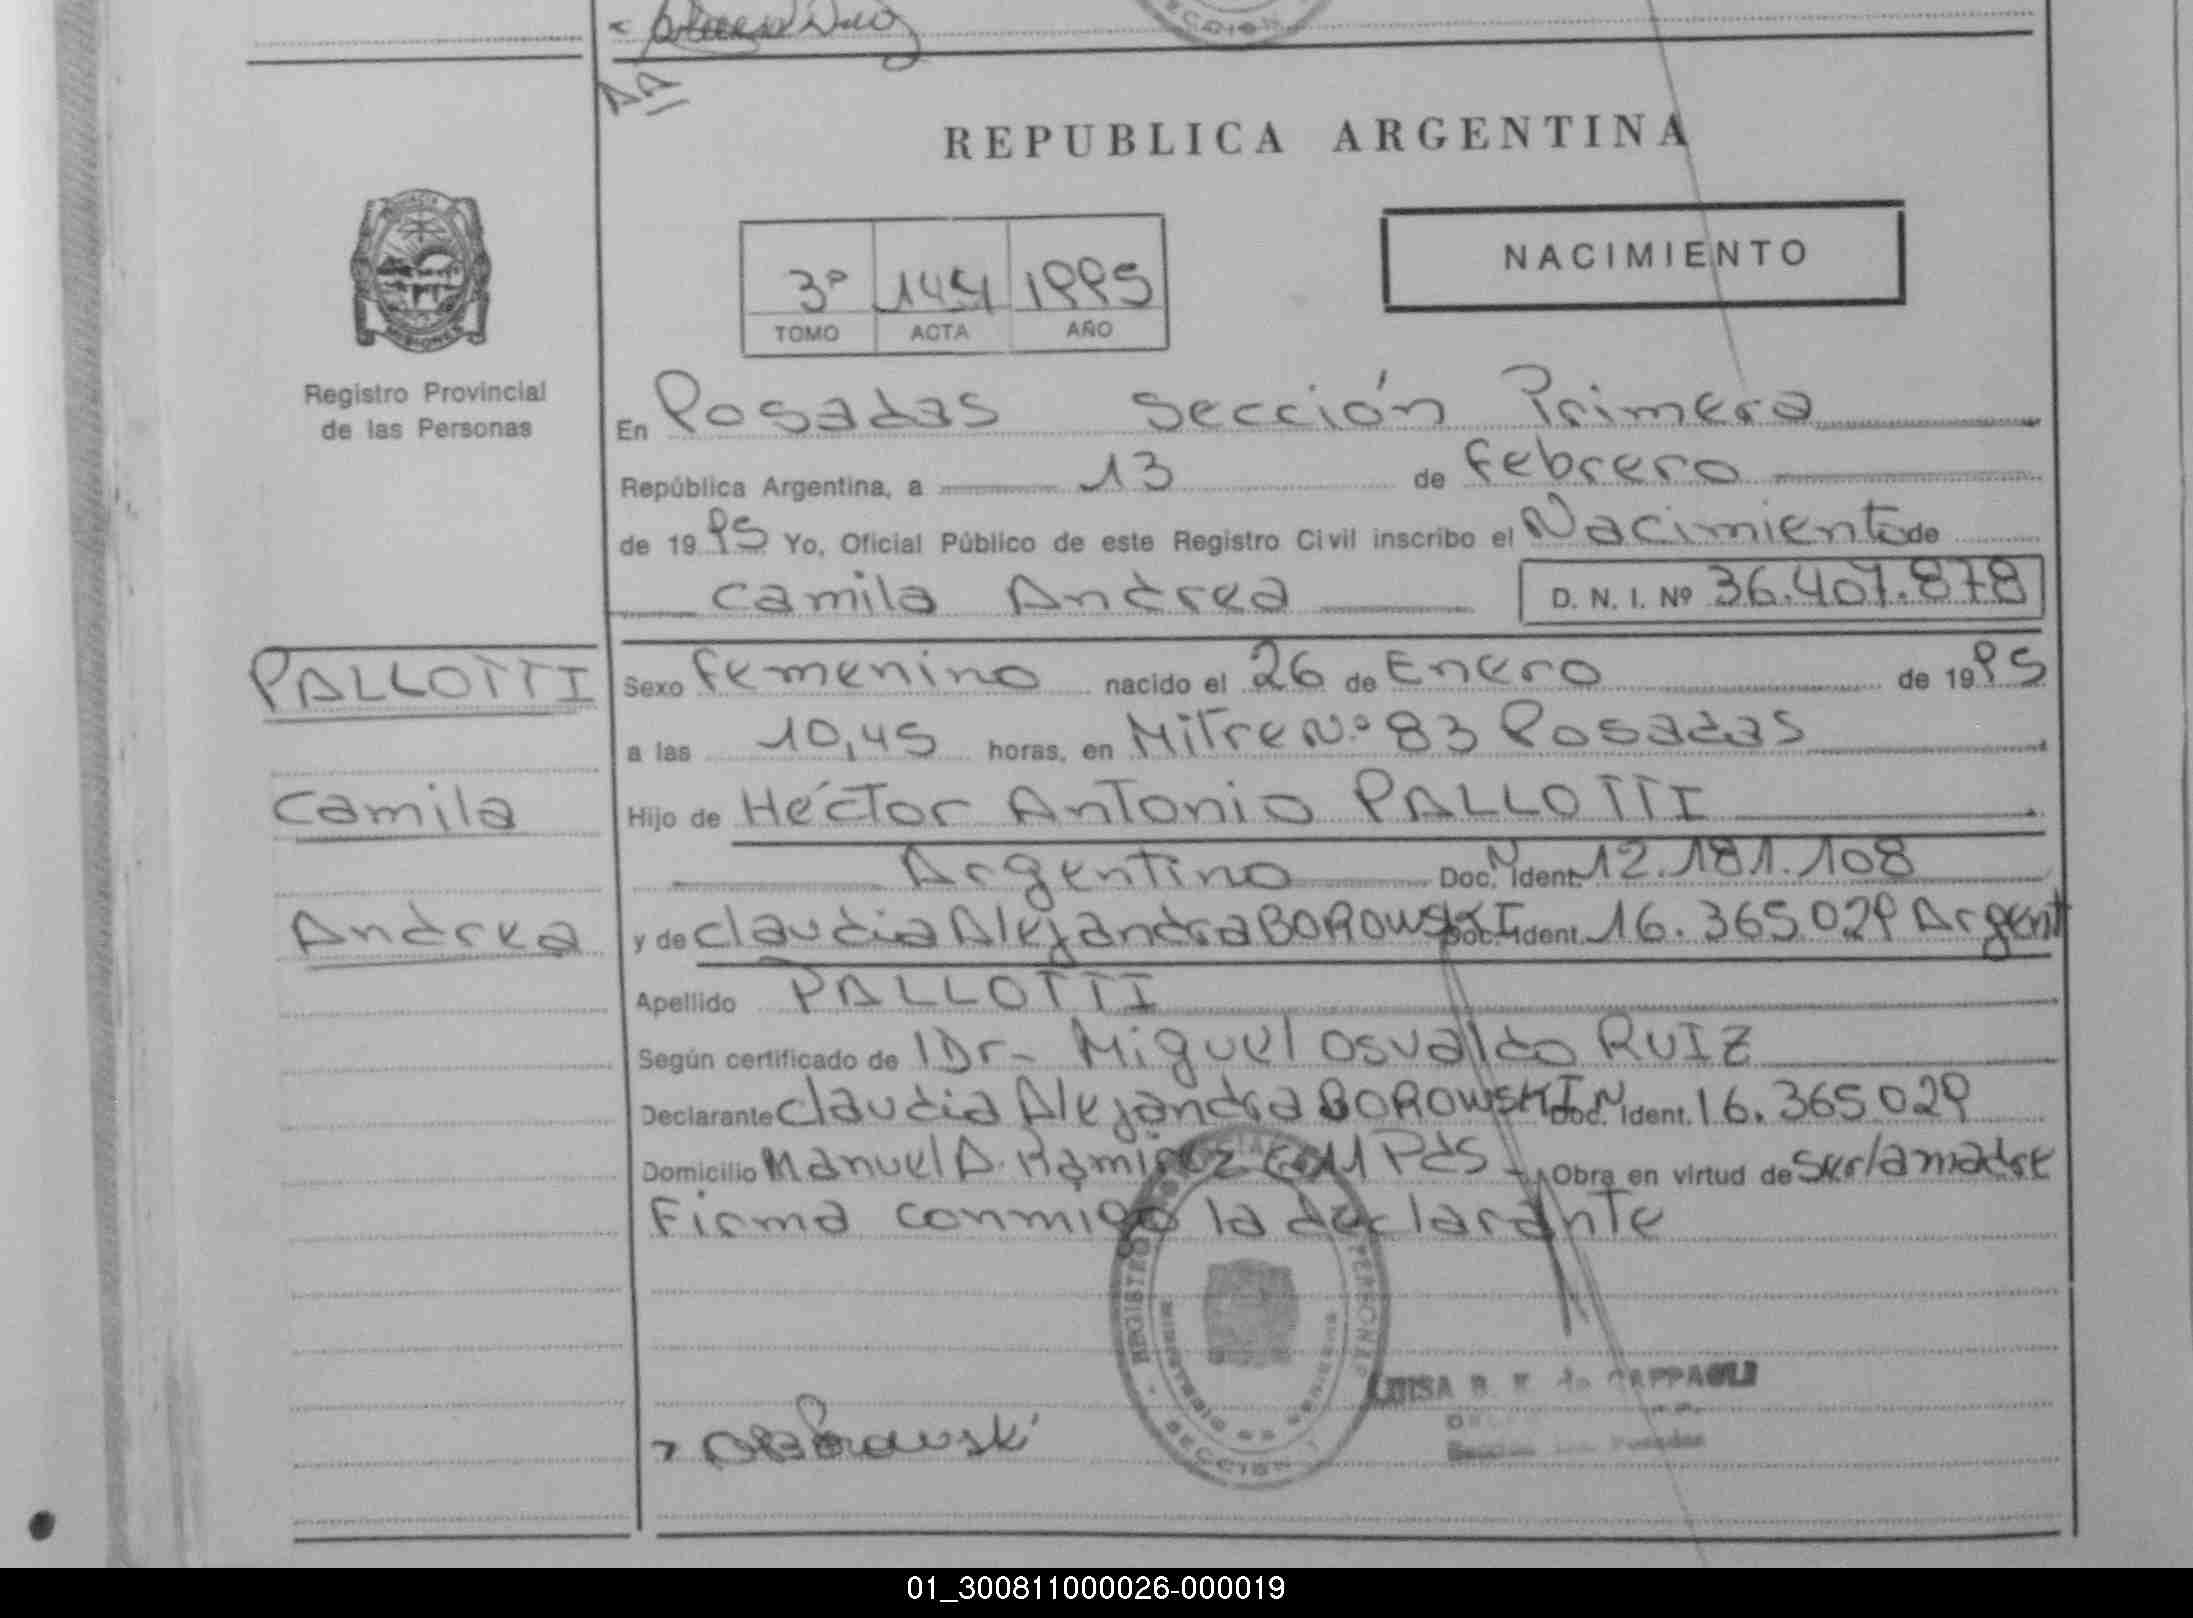 REPUBLICA ARGENTINA
NACIMIENTO
3º 1995
TOMO ACTA AÑO
Registro Provincial
de las Personas
En Posadas Sección Primera
República Argentina, a 13 de Febrero
de 1995 Yo, Oficial Público de este Registro Civil inscribo el Nacimiento de
Camila Andrea D. N. I. Nº 36.407.878
PALLOTTI
Camila
Andrea
Sexo Femenino nacido el 26 de Enero de 1995
a las 10,45 horas, en Mitre Nº 83 Posadas
Hijo de Héctor Antonio PALLOTTI
Argentino Doc. N Ident. 12.181.108
y de Claudia Alejandra BOROWSKI Doc. Ident. 16.365029 Argent
Apellido PALLOTTI
Según certificado de Dr- Miguel Osvaldo RUIZ
Declarante Claudia Alejandra BOROWSKI Doc. N Ident. 16.365029
Domicilio Manuel A. Ramirez Pds - Obra en virtud de ser la madre
Firma conmigo la declarante
REGISTRO PERSONAS
SECCION
LUISA B. de
01_300811000026-000019